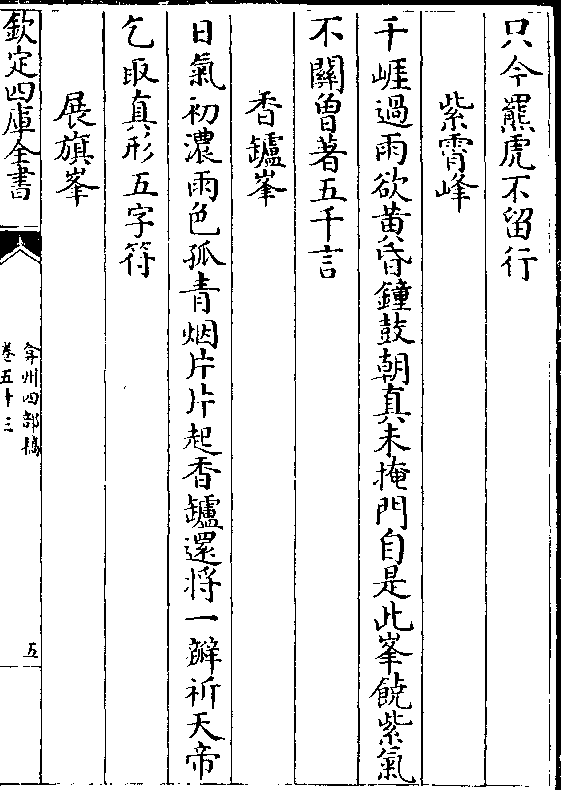 只今羆虎不留行
紫霄峰
千崕過雨欲黄昏鐘鼓朝真未掩門自是此峯饒紫氣
不關曽著五千言
香罏峯
日氣初濃雨色孤青烟片片起香罏還将一瓣祈天帝
乞取真形五字符
展旗峯
欽定四庫全書
弇州四部稿
卷五十三
五